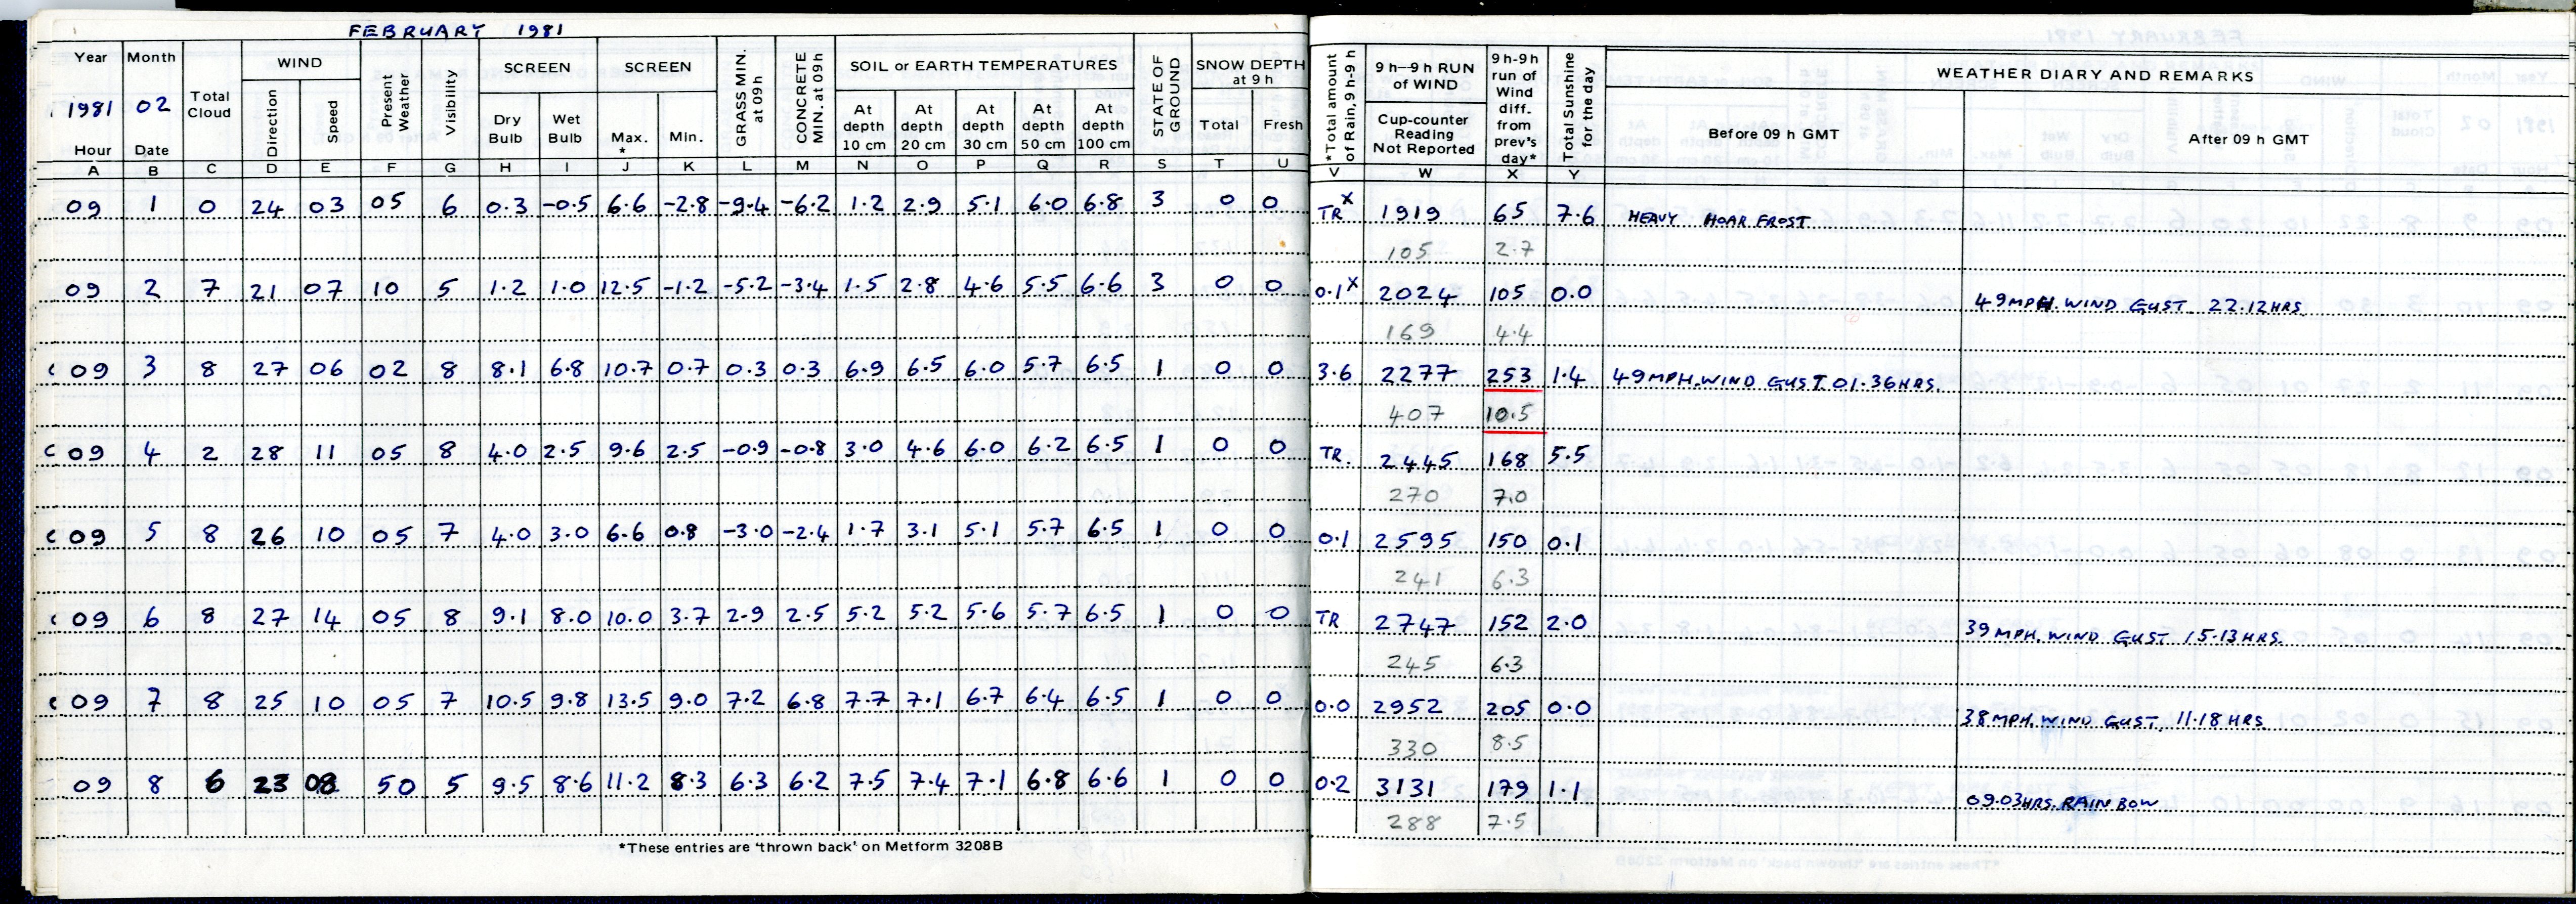 FEBRUARY 1981
Year Month Total Cloud WIND Present Weather Visibility SCREEN SCREEN GRASS MIN. at 09 h CONCRETE MIN. at 09 h SOIL or EARTH TEMPERATURES STATE OF GROUND SNOW DEPTH at 9 h *Total amount of Rain, 9h-9 h 9 h—9 h RUN of WIND 9h-9h run of Wind diff. from prev's day* Total Sunshine for the day WEATHER DIARY AND REMARKS
1981 02 Direction Speed Dry Bulb Wet Bulb Max. * Min. At depth 10 cm At depth 20 cm At depth 30 cm At depth 50 cm At depth 100 cm Total Fresh Cup-counter Reading Not Reported Before 09 h GMT After 09 h GMT
Hour Date
A B C D E F G H I J K L M N O P Q R S T U V W X Y
09 1 0 24 03 05 6 0.3 -0.5 6.6 -2.8 -9.4 -6.2 1.2 2.9 5.1 6.0 6.8 3 0 0 TR x 1919 65 7.6 HEAVY HOAR FROST
105 2.7
09 2 7 21 07 10 5 1.2 1.0 12.5 -1.2 -5.2 -3.4 1.5 2.8 4.6 5.5 6.6 3 0 0 0.1 x 2024 105 0.0 49MPH. WIND GUST 22.12HRS
169 4.4
c 09 3 8 27 06 02 8 8.1 6.8 10.7 0.7 0.3 0.3 6.9 6.5 6.0 5.7 6.5 1 0 0 3.6 2277 253 1.4 49MPH.WIND GUST 01.36HRS.
407 10.5
c 09 4 2 28 11 05 8 4.0 2.5 9.6 2.5 -0.9 -0.8 3.0 4.6 6.0 6.2 6.5 1 0 0 TR. 2445 168 5.5
270 7.0
c 09 5 8 26 10 05 7 4.0 3.0 6.6 0.8 -3.0 -2.4 1.7 3.1 5.1 5.7 6.5 1 0 0 0.1 2595 150 0.1
241 6.3
c 09 6 8 27 14 05 8 9.1 8.0 10.0 3.7 2.9 2.5 5.2 5.2 5.6 5.7 6.5 1 0 0 TR 2747 152 2.0 39MPH. WIND GUST 15.13HRS.
245 6.3
c 09 7 8 25 10 05 7 10.5 9.8 13.5 9.0 7.2 6.8 7.7 7.1 6.7 6.4 6.5 1 0 0 0.0 2952 205 0.0 38MPH. WIND GUST, 11.18HRS
330 8.5
09 8 6 23 08 50 5 9.5 8.6 11.2 8.3 6.3 6.2 7.5 7.4 7.1 6.8 6.6 1 0 0 0.2 3131 179 1.1 09.03HRS. RAINBOW
288 7.5
*These entries are 'thrown back' on Metform 3208B